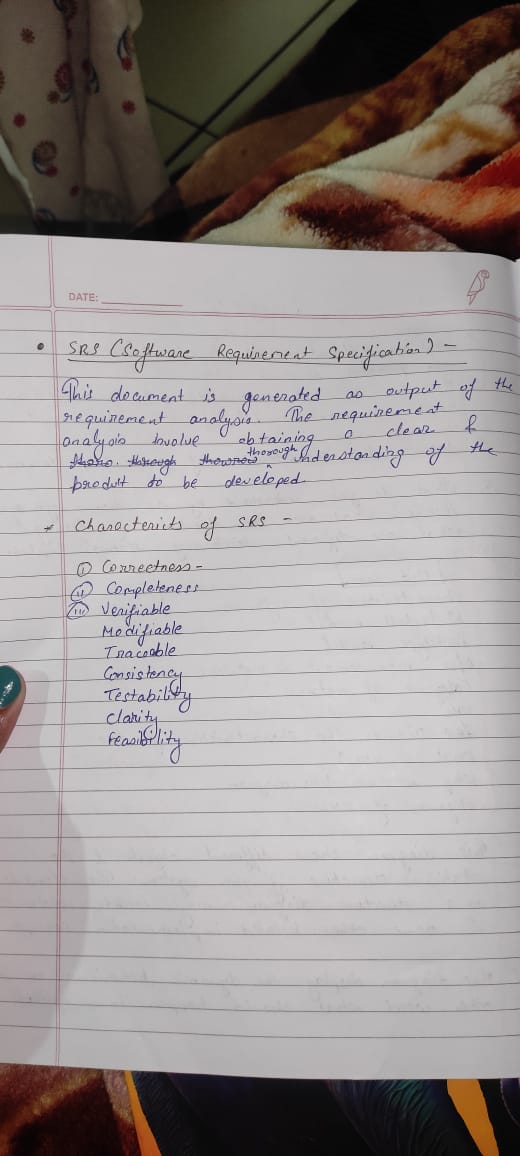 DATE:
• SRS (Software Requirement Specification) -
This document is generated as output of the
requirement analysis. The requirement
analysis involve obtaining a clear &
thorough understanding of the
product to be developed
* Characterits of SRS -
(i) Correctness -
(ii) Completeness
(iii) Verifiable
Modifiable
Traceable
Consistency
Testability
Clarity
Feasibility